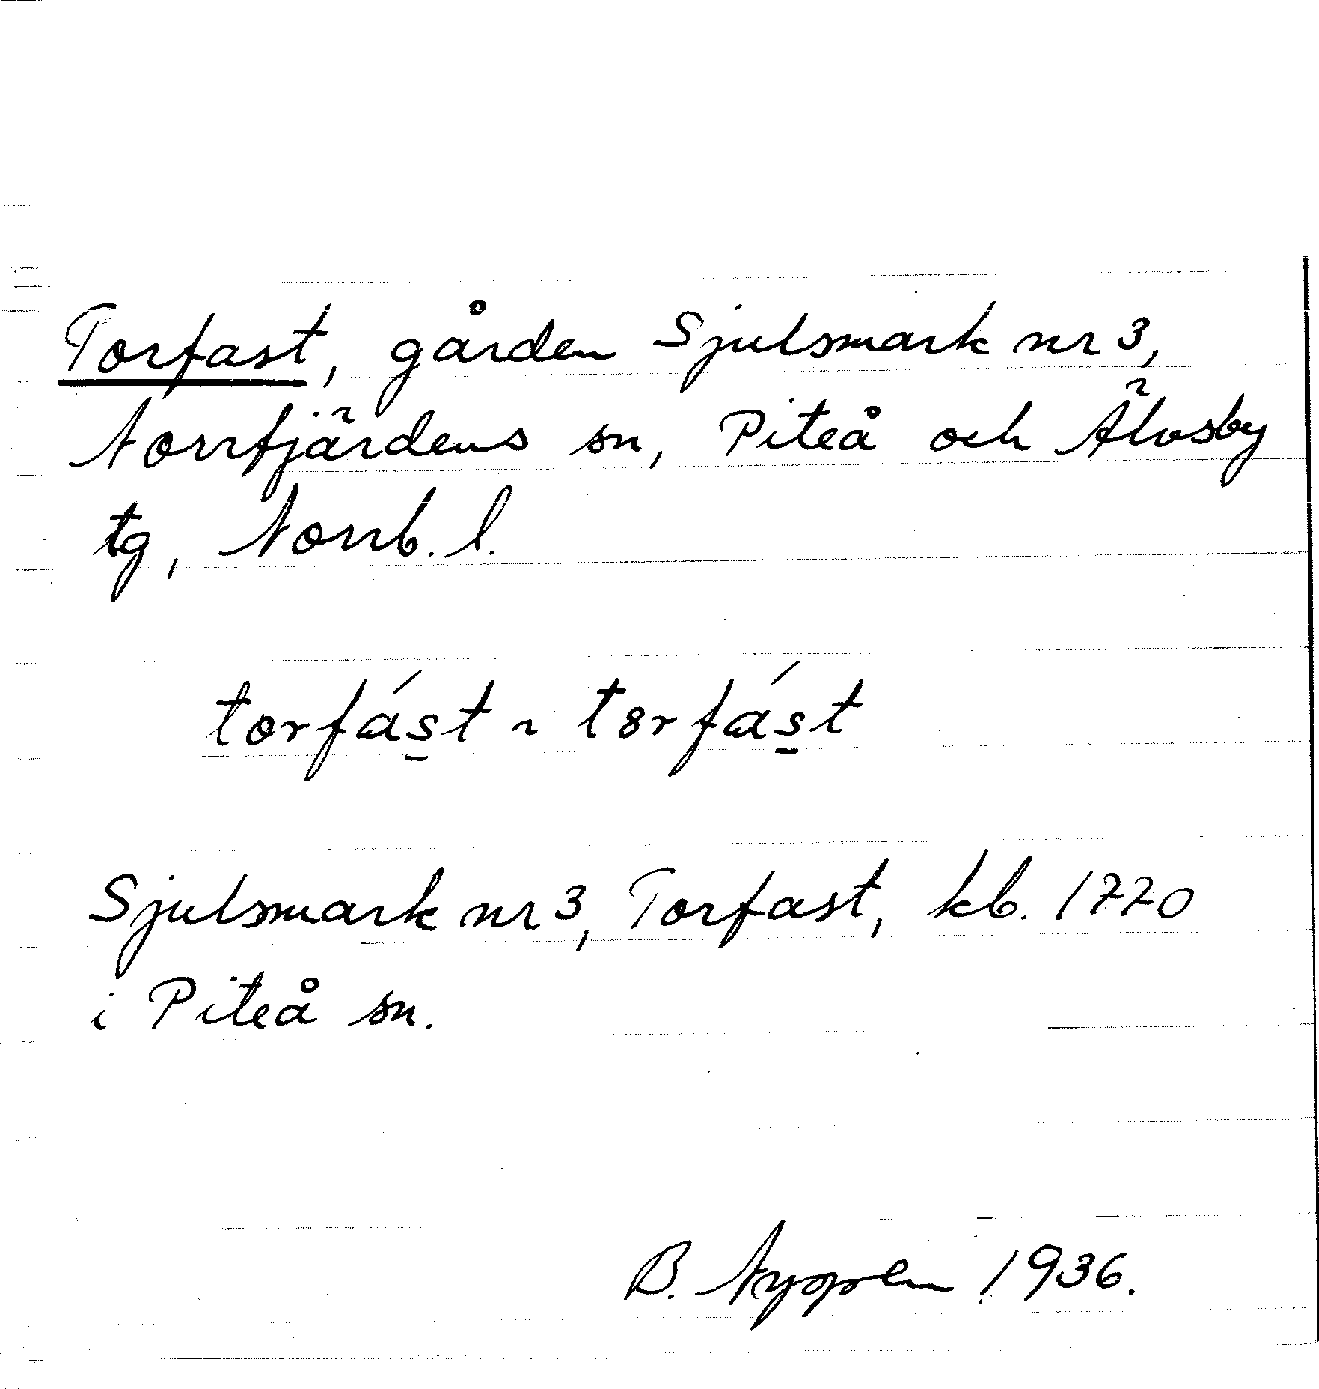 Torfast, gården Sjulsmark nr 3,
Norrfjärdens sn, Piteå och Älvsby
tg, Norrb. l.
torfást ~ tørfást
Sjulsmark nr 3, Torfast, kb. 1770
i Piteå sn.
B. Nygren 1936.